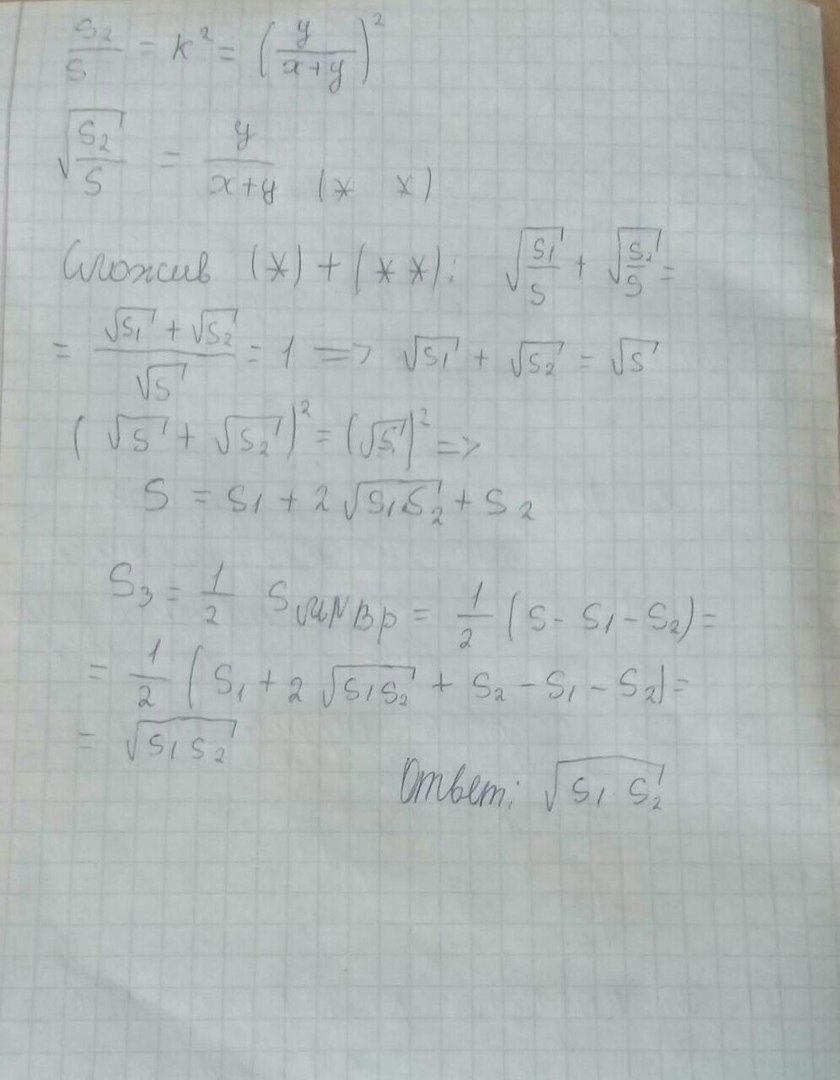 S₂/S = k² = (y/(x+y))²
√(S₂/S) = y/(x+y) (* *)
Сложив (*) + (**): √(S₁/S) + √(S₂/S) =
= (√S₁ + √S₂)/√S = 1 => √S₁ + √S₂ = √S
(√S + √S₂)² = (√S)² =>
S = S₁ + 2√(S₁S₂) + S₂
S₃ = 1/2 S MNBP = 1/2 (S - S₁ - S₂) =
= 1/2 (S₁ + 2√(S₁S₂) + S₂ - S₁ - S₂) =
= √(S₁S₂)
Ответ: √(S₁ S₂)